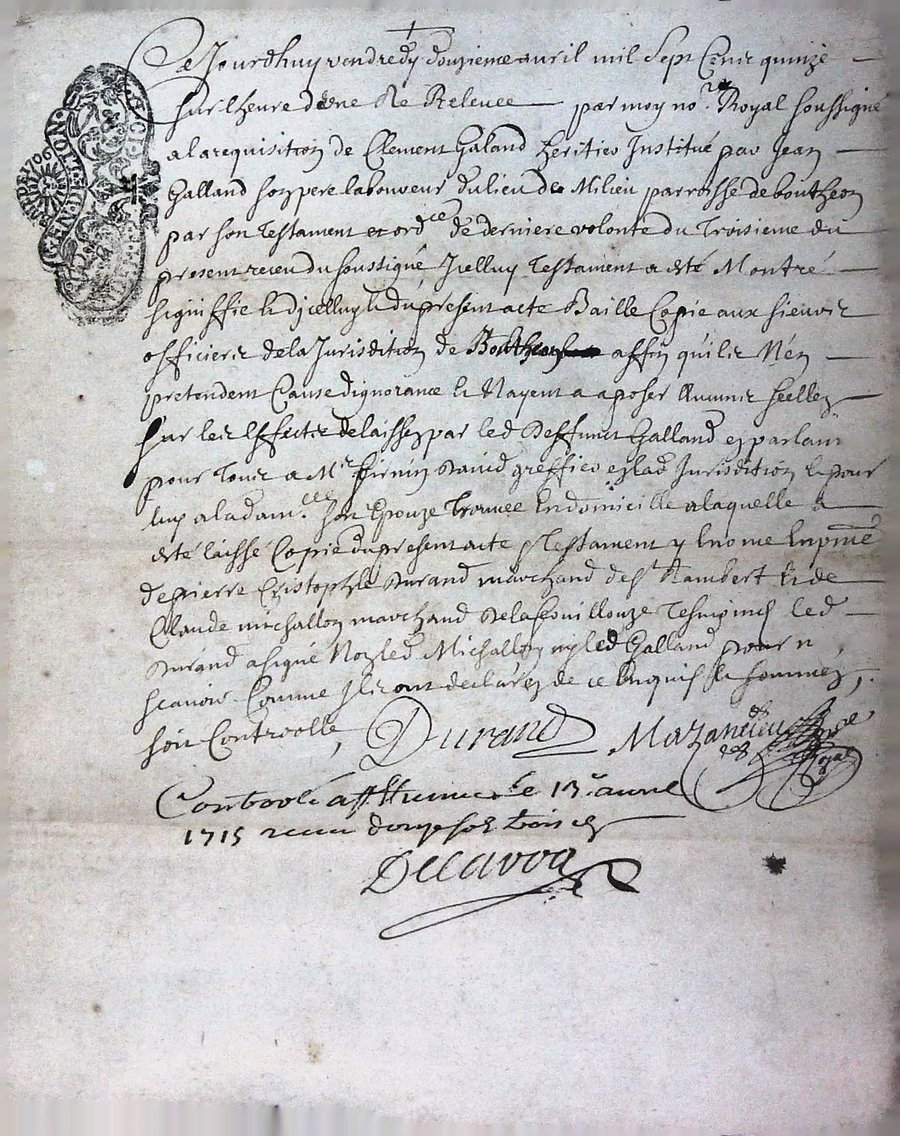 Ce Jourdhuy vendredy douzieme avril mil Sept Cens quinze
sur lheure dune de Relevee par moy no.re Royal soussigné
a la requisition de Clement Galand heritier Institué par Jean
Galland son pere laboureur du lieu de Milieu parroisse de boutheon
par son Testament et ord.ce de derniere volonte du Troisieme du
present receu du soussigné Icelluy Testament a esté Montré
signiffie & dicelluy & du present acte Baillé Copie aux sieurs
officiers de la Jurisdition de affin quils Nen
pretendent Cause dignorance & Nayent a aposer Aucuns seellez
sur les Effects delaissez par led Deffunct Galland parlant
pour Tous a Mr firmin David greffier Jurisdition & pour
luy a la dam.lle son Epouze Trouvee En domicille a laquelle a
esté laissé Copie du present acte Testament
de pierre Cristophle Durand marchand de St Rambert & de
Claude michallon marchand De la fouillouze Tesmoins led
Durand a signé Non led Michallon ny led Galland pour n
scavoir Comme Ils ont declaré de ce Enquis & sommez
soit Controolle
Durand
Controlé a le 13.e avril
1715 receu douze sols trois
Delavoa